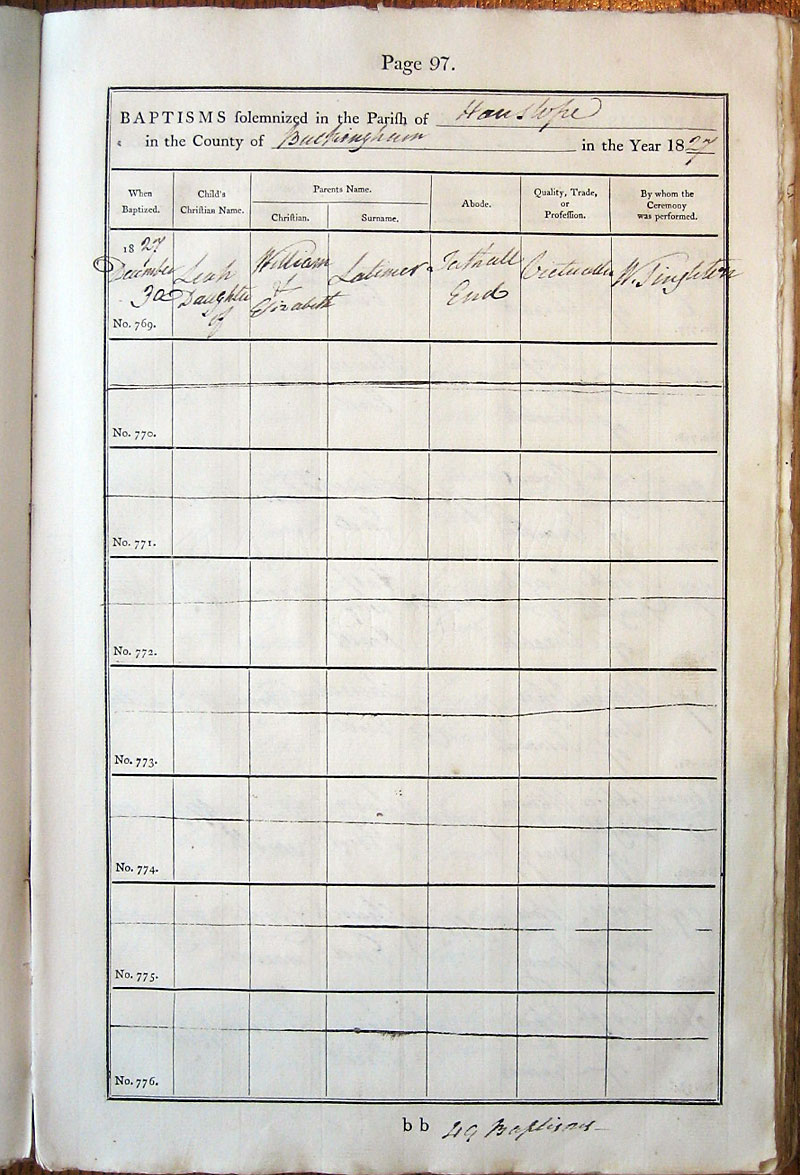 Page 97.
BAPTISMS ſolemnized in the Pariſh of Hanslope
in the County of Buckingham in the Year 1827
When Baptized.
Child's Chriſtian Name.
Parents Name.
Chriſtian.
Surname.
Abode.
Quality, Trade, or Profeſſion.
By whom the Ceremony was performed.
1827
December
30
No. 769.
Leah
Daughter
of
William
&
Elizabeth
Latimer
Tathall
End
Victualler
W. Singleton
No. 770.
No. 771.
No. 772.
No. 773.
No. 774.
No. 775.
No. 776.
b b 49 Baptisms